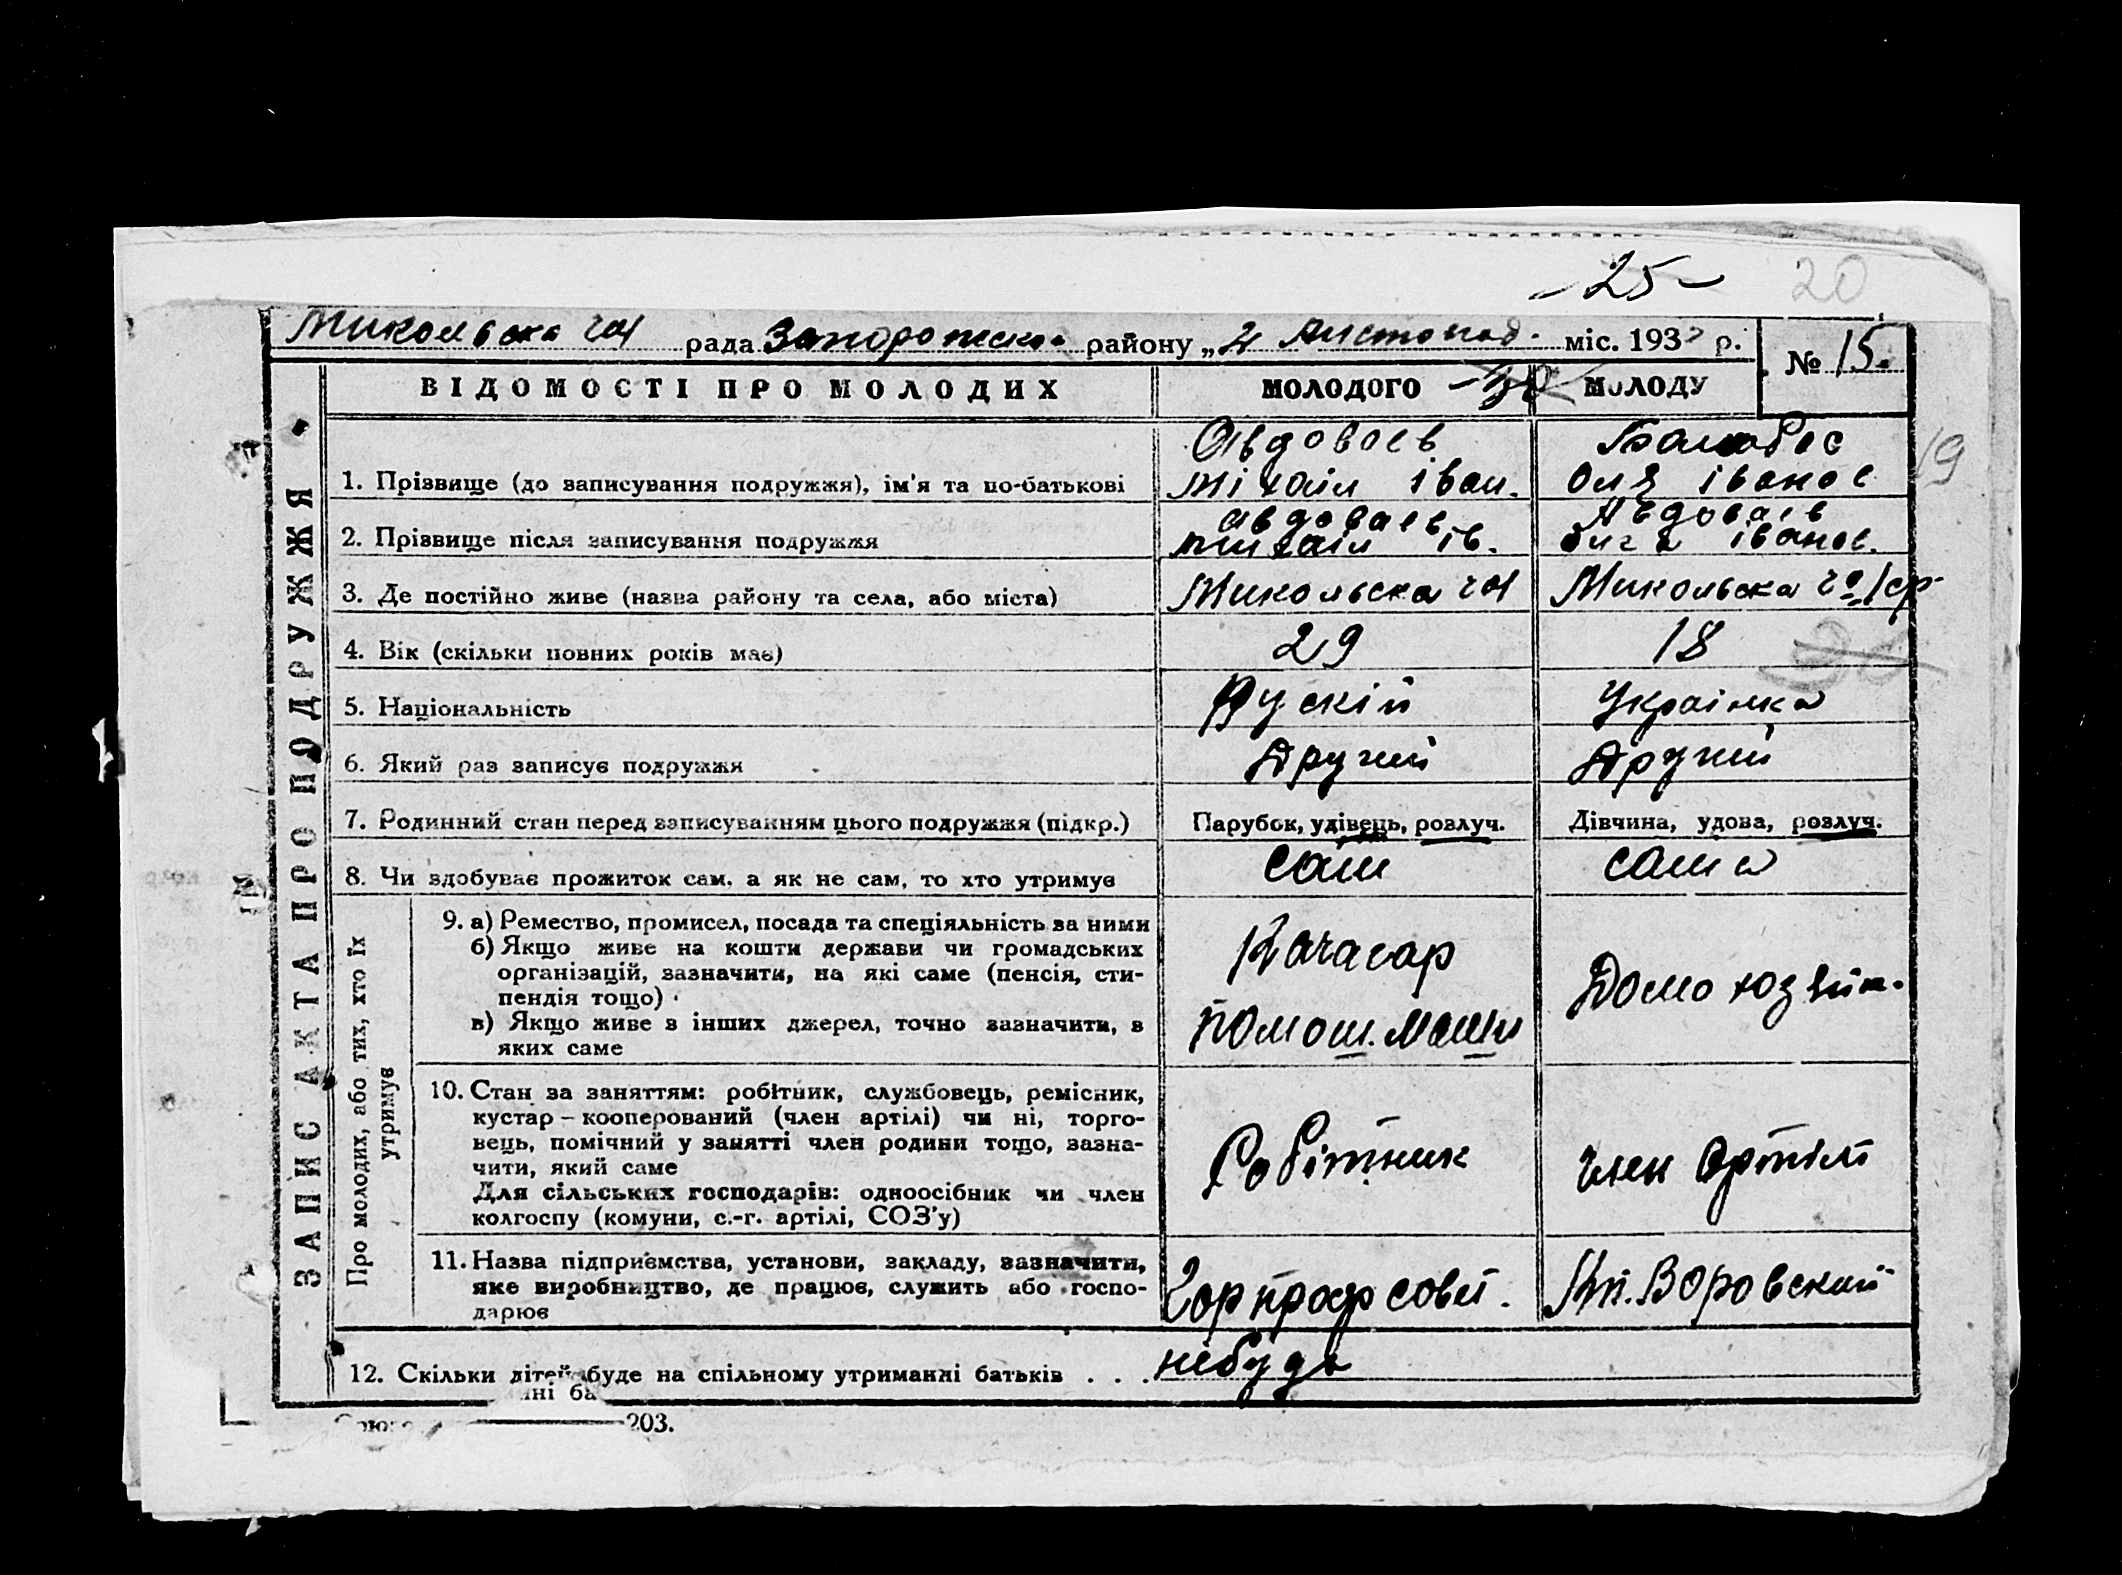 - 25 -
20
Микольська рада Запорожско району „ 21 Листопад. міс. 193 р.
№ 15.
ВІДОМОСТІ ПРО МОЛОДИХ МОЛОДОГО МОЛОДУ
19
ЗАПИС АКТА ПРО ПОДРУЖЖЯ
Авдоваєв
1. Прізвище (до записування подружжя), ім'я та по-батькові Міхаіл Іван. Оля Іванов
2. Прізвище після записування подружжя Авдоваев Михаіл Ів. Авдоваев Іванов.
3. Де постійно живе (назва району та села, або міста) Микольська Микольська
4. Вік (скільки повних років має) 29 18
5. Національність Рускій Українка
6. Який раз записує подружжя Другий Другий
7. Родинний стан перед записуванням цього подружжя (підкр.) Парубок, удівець, розлуч. Дівчина, удова, розлуч.
8. Чи здобуває прожиток сам, а як не сам, то хто утримує сам сама
Про молодих, або тих, хто їх
утримує
9. а) Ремество, промисел, посада та спеціяльність за ними
б) Якщо живе на кошти держави чи громадських
організацій, зазначити, на які саме (пенсія, сти-
пендія тощо)
в) Якщо живе з інших джерел, точно зазначити, з
яких саме
Качагар
помош. маши
Домохозяйк.
10. Стан за заняттям: робітник, службовець, ремісник,
кустар – кооперований (член артілі) чи ні, торго-
вець, помічний у занятті член родини тощо, зазна-
чити, який саме
Для сільських господарів: одноосібник чи член
колгоспу (комуни, с.-г. артілі, СОЗ'у)
Робітник
член Артіли
11. Назва підприємства, установи, закладу, зазначити,
яке виробництво, де працює, служить або госпо-
дарює
Горпрофсовет.
Воровский
12. Скільки дітей буде на спільному утриманні батьків . . . небуде
203.